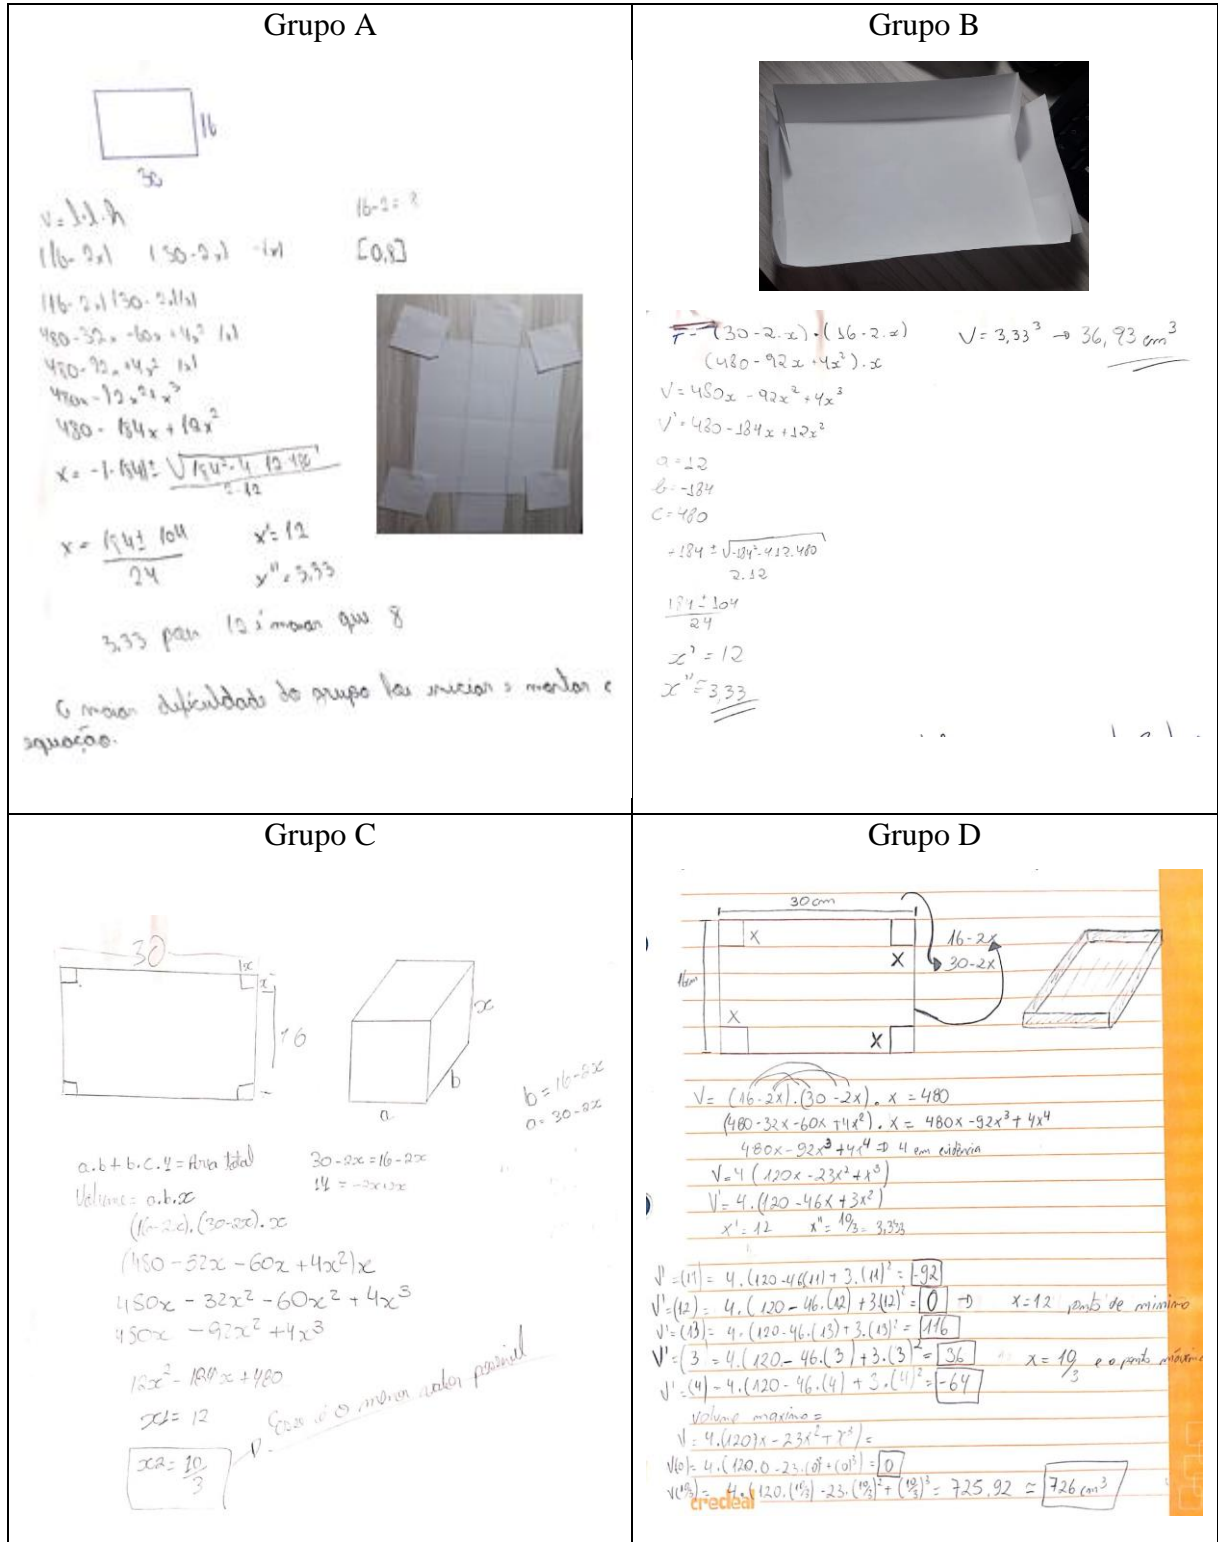 Grupo A
16
30
V = l.l.h
(16-2x) (30-2x) (x)
[0,8]
(16-2x)(30-2x)(x)
480-32x-60x+4x² (x)
480-92x+4x² (x)
480 - 184x + 12x²
x = 184 ± 104
24
x' = 12
x'' = 3,33
3,33 12 é maior que 8
A maior dificuldade do grupo foi iniciar e montar a
equação.
Grupo B
(30-2.x).(16-2.x)
(480-92x+4x²).x
V = 480x - 92x² + 4x³
V' = 480-184x+12x²
a = 12
b = -184
c = 480
-184 ± √-184²-4.12.480
2.12
184 ± 104
24
x' = 12
x'' = 3,33
V = 3,33³ → 36,93 cm³
Grupo C
30
x
x
16
x
b
a
b = 16-2x
a = 30-2x
a.b + b.c. = Área total
Volume = a.b.x
(16-2x).(30-2x).x
(480-32x-60x+4x²)x
480x-32x²-60x²+4x³
480x-92x²+4x³
12x²-184x+480
x1 = 12
x2 = 10
3
30-2x=16-2x
14 = -2x+2x
Esse é o menor valor possível
Grupo D
30 cm
16cm
X
X
X
X
16-2x
30-2x
V = (16-2x).(30-2x).x = 480
(480-32x-60x+4x²).x = 480x-92x³+4x⁴
480x-92x³+4x⁴ ⇒ 4 em evidência
V=4(120x-23x²+x³)
V'=4.(120-46x+3x²)
x'=12 x''=10/3=3,333
V'=(11)= 4.(120-46(11)+3.(11)²= -92
V'=(12)= 4.(120-46.(12)+3.(12)²= 0 ⇒ x=12 ponto de minimo
V'=(13)= 4.(120-46.(13)+3.(13)²= 116
V'=(3 = 4.(120-46.(3)+3.(3)²= 36 x=10/3 e o ponto máximo
V'=(4)-4.(120-46.(4)+3.(4)²= -64
volume maximo=
V=4.(120)x-23x²+x³)=
V(0)= 4.(120.0-23.(0)²+(0)³)= 0
V(10/3)= 4.(120.(10/3)-23.(10/3)²+(10/3)³= 725,92 ≃ 726 cm³
credeal